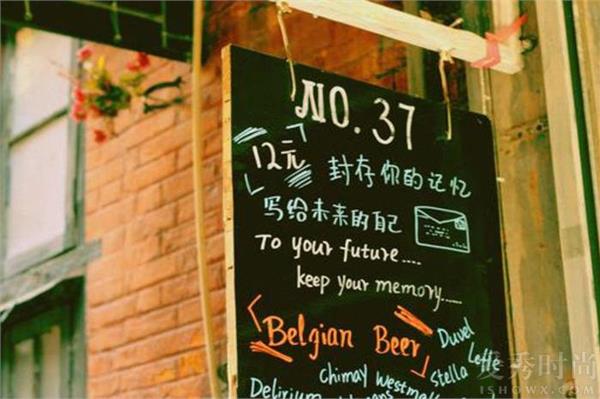 NO. 37
12元 封存你的记忆
写给未来的自己
To your future....
keep your memory......
「Belgian Beer」
Duvel
Leffe
Chimay Westmalle Stella
Delirium
爱秀时尚
ISHOWX.COM